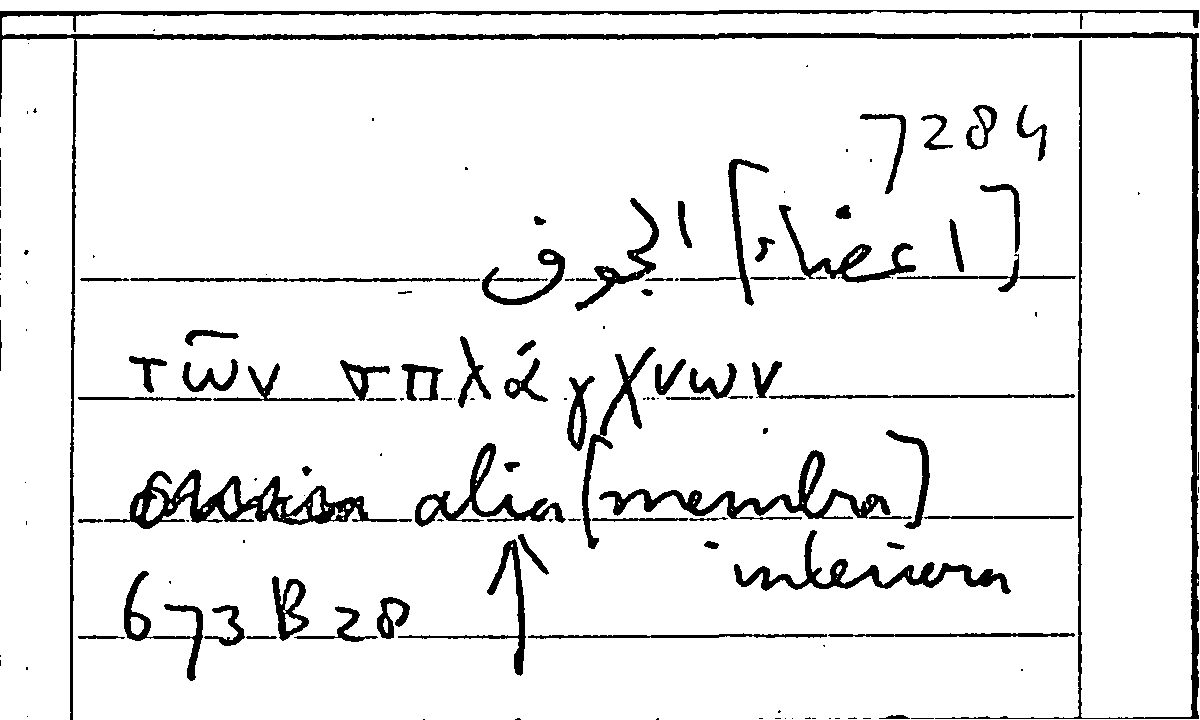 7284
[الأعضاء] الجوف
τῶν σπλάγχνων
alia [membra]
interiora
673 B 28 ↑